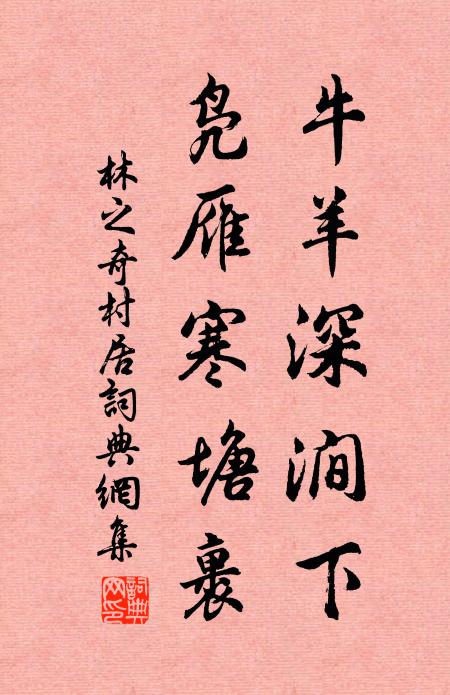 牛羊深澗下
凫雁寒塘裏
林之奇村居詞典網集
詞典网印